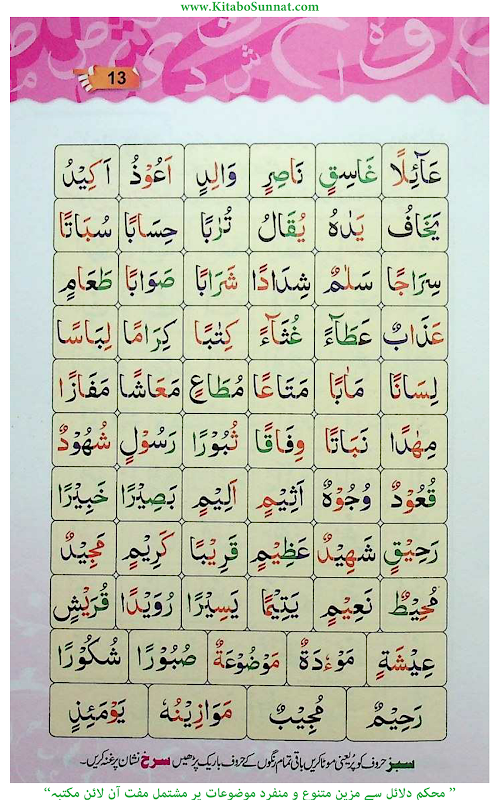 www.KitaboSunnat.com
13
عَآئِلًا غَاسِقٍ نَاصِرٍ وَالِدٍ اَعُوْذُ اَكِيْدُ
يَخَافُ يَدٰهُ يُقَالُ تُرٰبًا حِسَابًا سُبَاتًا
سِرَاجًا سَلٰمٌ شِدَادًا شَرَابًا صَوَابًا طَعَامٍ
عَذَابٌ عَطَآءً غُثَآءً كِتٰبًا كِرَامًا لِبَاسًا
لِسَانًا مَاٰبًا مَتَاعًا مُطَاعٍ مَعَاشًا مَفَازًا
مِهٰدًا نَبَاتًا وِفَاقًا ثُبُوْرًا رَسُوْلٍ شُهُوْدٌ
قُعُوْدٌ وُجُوْهٌ اَثِيْمٍ اَلِيْمٍ بَصِيْرًا خَبِيْرًا
رَحِيْقٍ شَهِيْدٌ عَظِيْمٍ قَرِيْبًا كَرِيْمٍ مَجِيْدٌ
مُحِيْطٌ نَعِيْمٍ يَتِيْمًا يَسِيْرًا رُوَيْدًا قُرَيْشٍ
عِيْشَةٍ مَوْءٗدَةُ مَوْضُوْعَةٌ صُبُوْرًا شَكُوْرًا
رَحِيْمٌ مُجِيْبٌ مَوَازِيْنُهٗ يَوْمَئِذٍ
سبز حروف کو پُر یعنی موٹا کریں باقی تمام رنگوں کے حروف باریک پڑھیں سرخ نشان پر غنہ کریں۔
”محکم دلائل سے مزین متنوع و منفرد موضوعات پر مشتمل مفت آن لائن مکتبہ“